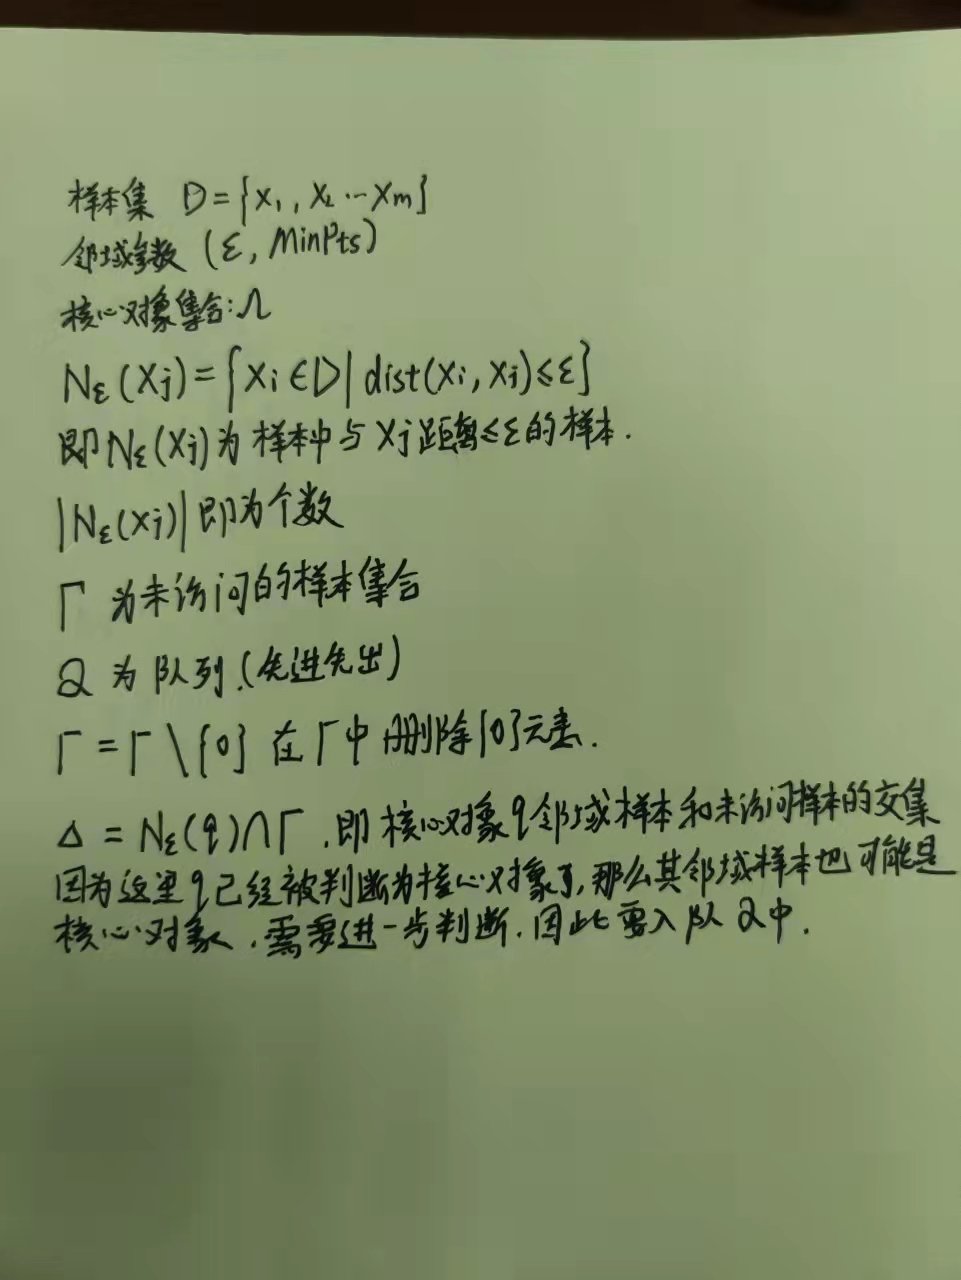 样本集 D={x₁,x₂…xm}
邻域参数 (ε, MinPts)
核心对象集合:Ω
Nε(xj)={xi∈D| dist(xi,xj)≤ε}
即Nε(xj)为样本中与xj距离≤ε的样本.
|Nε(xj)|即为个数
Γ 为未访问的样本集合
Q 为队列.(先进先出)
Γ=Γ\{o} 在Γ中删除{o}元素.
Δ = Nε(q)∩Γ.即核心对象q邻域样本和未访问样本的交集
因为这里q已经被判断为核心对象了,那么其邻域样本也可能是
核心对象.需要进一步判断.因此要入队Q中.